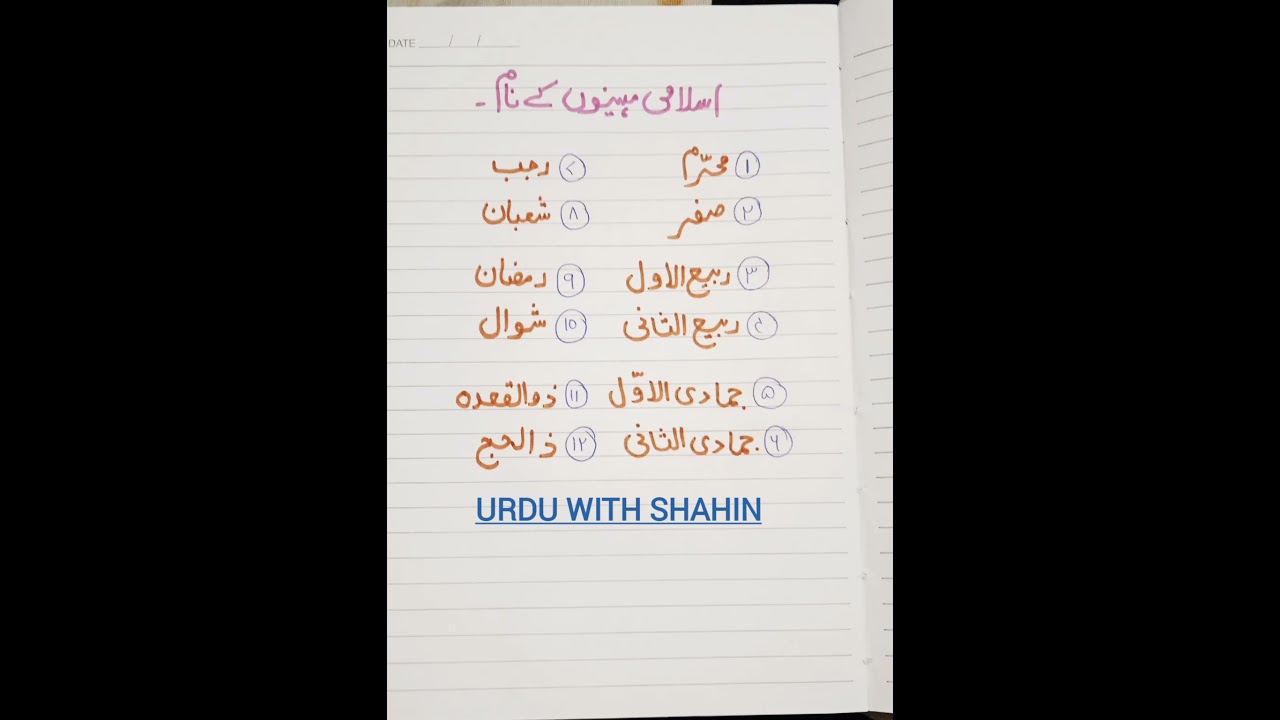 DATE ___/___/___
اسلامی مہینوں کے نام ۔
۱ محرّم ۷ رجب
۲ صفر ۸ شعبان
۳ ربیع الاول ۹ رمضان
۴ ربیع الثانی ۱۰ شوال
۵ جمادی الاوّل ۱۱ ذوالقعدہ
۶ جمادی الثانی ۱۲ ذالحج
URDU WITH SHAHIN